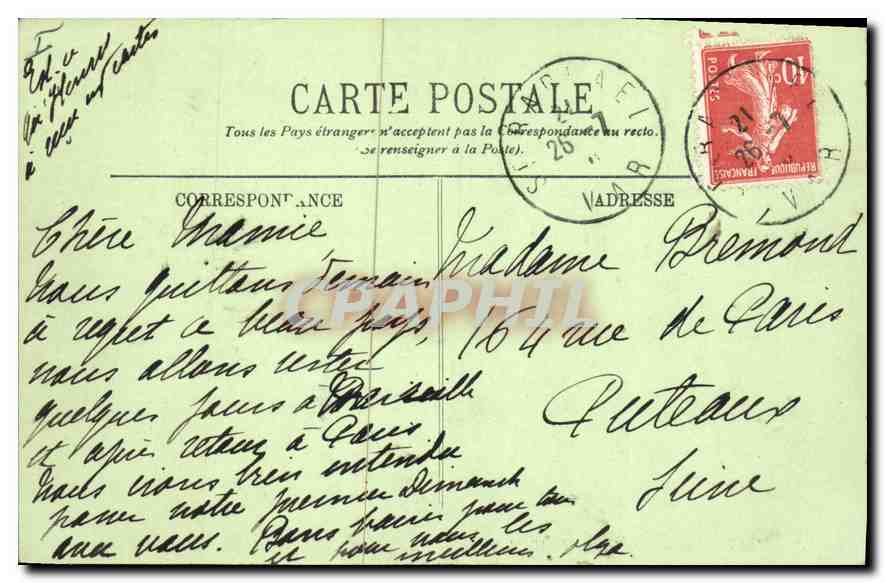 CARTE POSTALE
Tous les Pays étrangers n'acceptent pas la Correspondance au recto.
(se renseigner à la Poste).
CORRESPONDANCE
ADRESSE
Chère Mamie,
nous quittons demain
à regret ce beau pays,
nous allons rester
quelques jours à Marseille
et après retour à Paris
nous irons bien entendu
passer notre premier Dimanche
avec vous. Bons baisers pour tous
et pour vous les
meilleurs. Olga
Madame Brémond
164 rue de Paris
Puteaux
Seine
ST RAPHAEL
21
26 -7
VAR
10
POSTES
RÉPUBLIQUE FRANÇAISE
21
26 -7
VAR
CPAPHIL